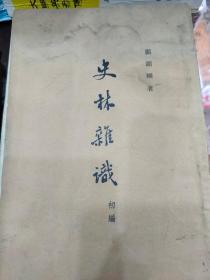 顧頡剛著
史林雜識
初編